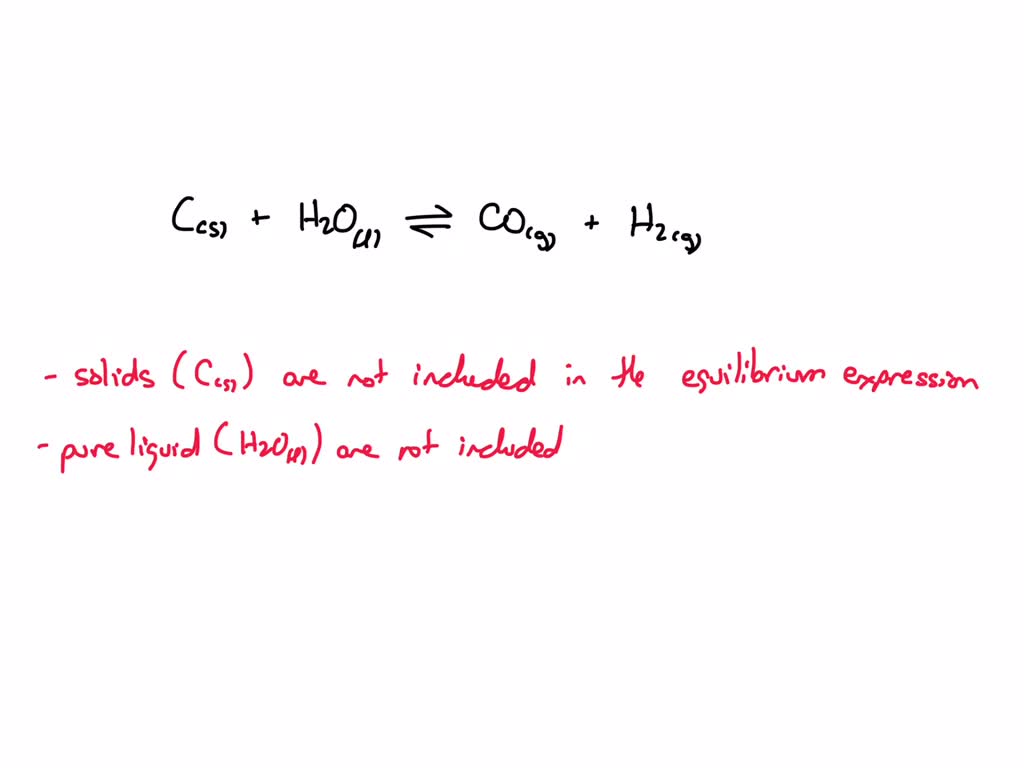 C(s) + H2O(l) ⇌ CO(g) + H2(g)
- solids (C(s)) are not included in the equilibrium expression
- pure liquid (H2O(l)) are not included